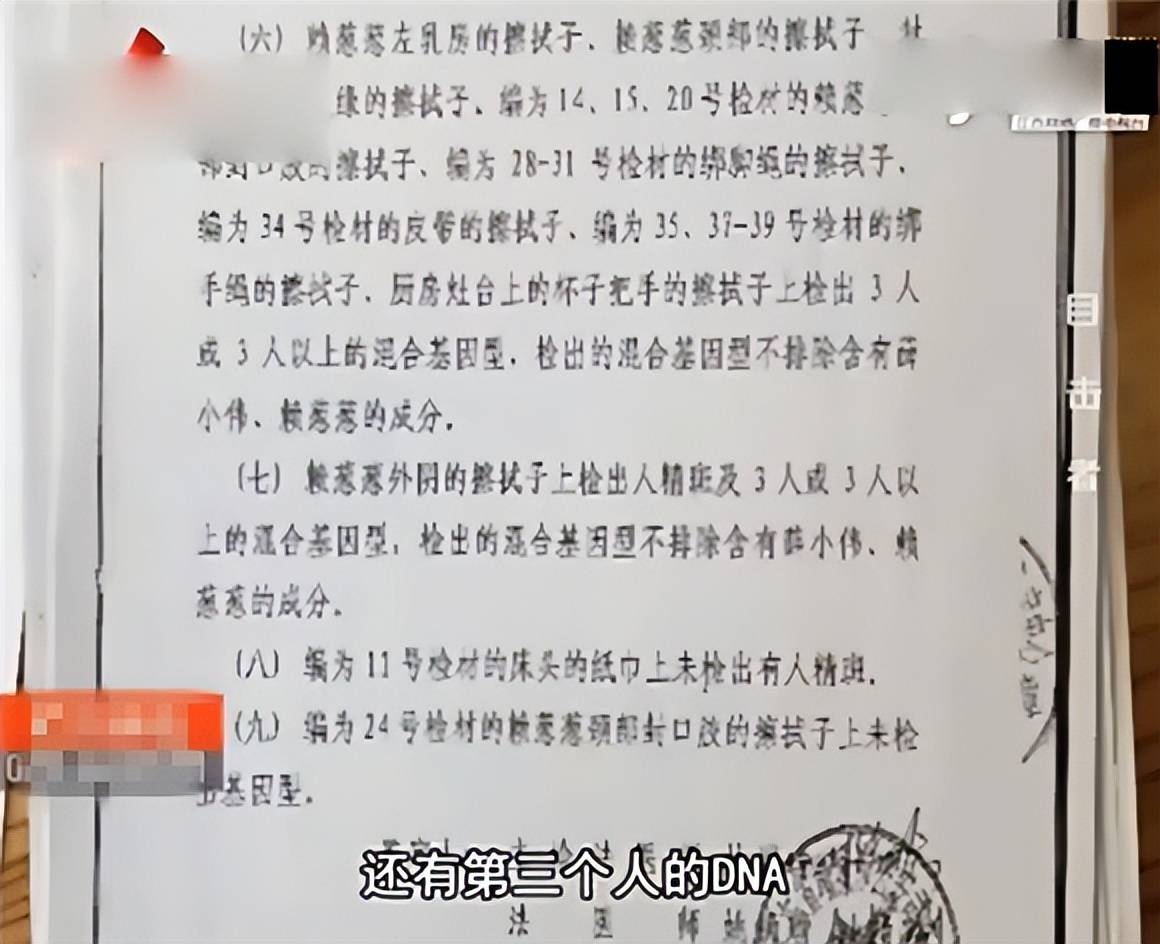 (六) 赖葱葱左乳房的擦拭子、赖葱葱颈部的擦拭子
缘的擦拭子、编为14、15、20号检材的赖葱
部封口胶的擦拭子、编为 28-31 号检材的绑脚绳的擦拭子、
编为 34 号检材的皮带的擦拭子、编为 35、37-39 号检材的绑
手绳的擦拭子、厨房灶台上的杯子把手的擦拭子上检出 3 人
或 3 人以上的混合基因型，检出的混合基因型不排除含有薛
小伟、赖葱葱的成分。
(七) 赖葱葱外阴的擦拭子上检出人精斑及 3 人或 3 人以
上的混合基因型，检出的混合基因型不排除含有薛小伟、赖
葱葱的成分。
(八) 编为 11 号检材的床头的纸巾上未检出有人精斑。
(九) 编为 24 号检材的赖葱葱颈部封口胶的擦拭子上未检
出基因型。
法 医 师
还有第三个人的DNA
目击者